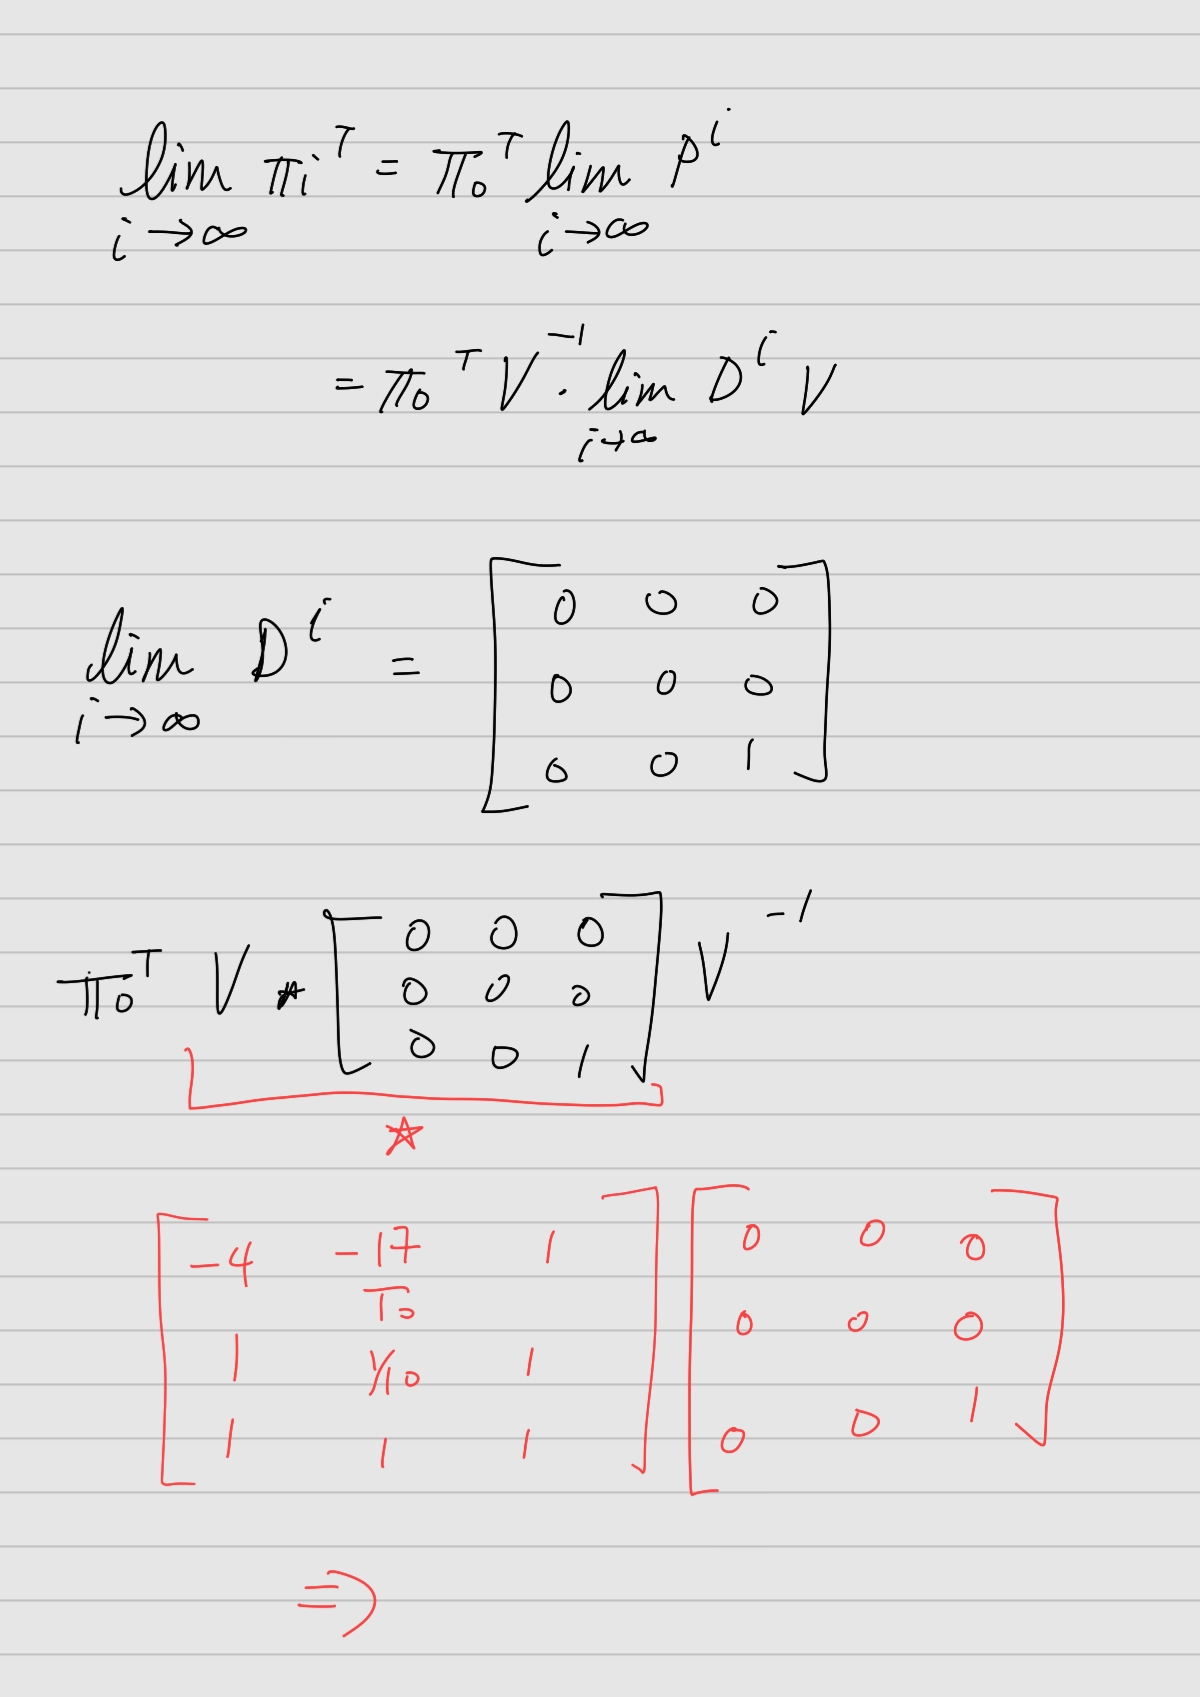 lim πi^T = π₀^T lim P^i
i→∞ i→∞
= π₀^T V^-1 · lim D^i V
i→∞
lim D^i =
i→∞
[0 0 0
0 0 0
0 0 1]
π₀^T V * [0 0 0
0 0 0
0 0 1] V^-1
☆
[-4 -17/10 1
1 1/10 1
1 1 1] [0 0 0
0 0 0
0 0 1]
⇒